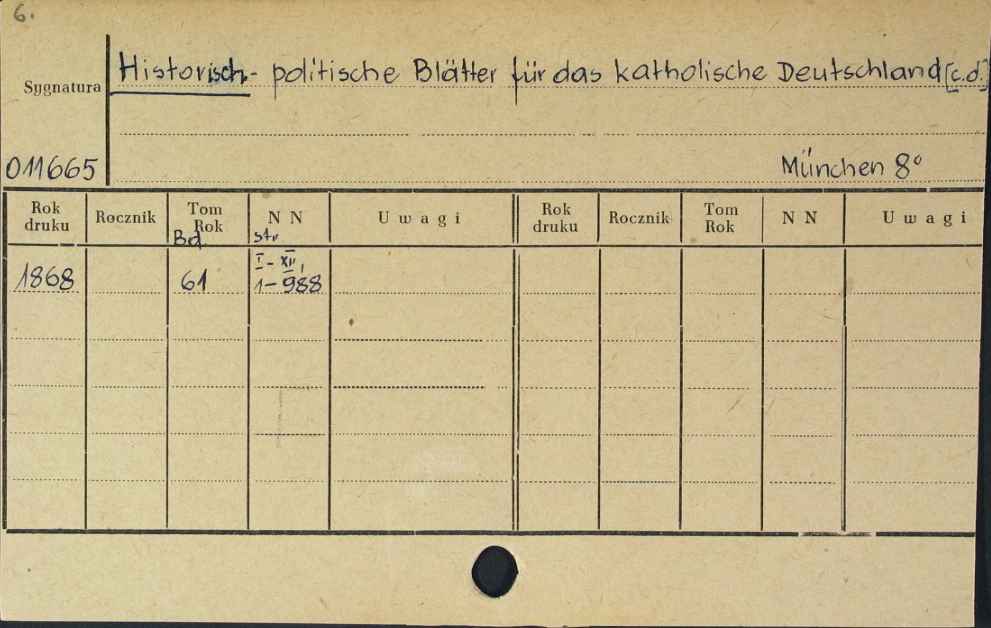 6.
Historisch- politische Blätter für das katholische Deutschland [c.d.]
Sygnatura
011665
München 8°
Rok druku Rocznik Tom Rok NN Uwagi Rok druku Rocznik Tom Rok NN Uwagi
Bd. str.
I - XII,
1868 61 1-988